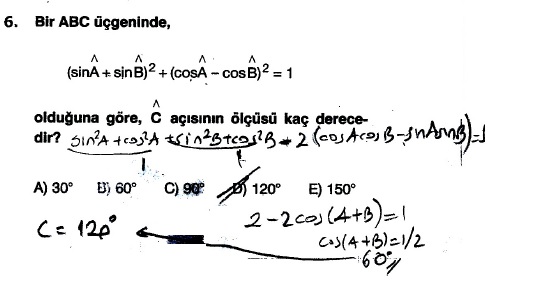 6. Bir ABC üçgeninde,
(sinÂ + sinB̂)² + (cosÂ − cosB̂)² = 1
olduğuna göre, Ĉ açısının ölçüsü kaç derece-
dir? sin²A + cos²A + sin²B + cos²B - 2 (cosAcosB - sinAsinB) = 1
1 1
A) 30° B) 60° C) 90° D) 120° E) 150°
C = 120° 2 - 2cos(A+B) = 1
cos(A+B) = 1/2
60°